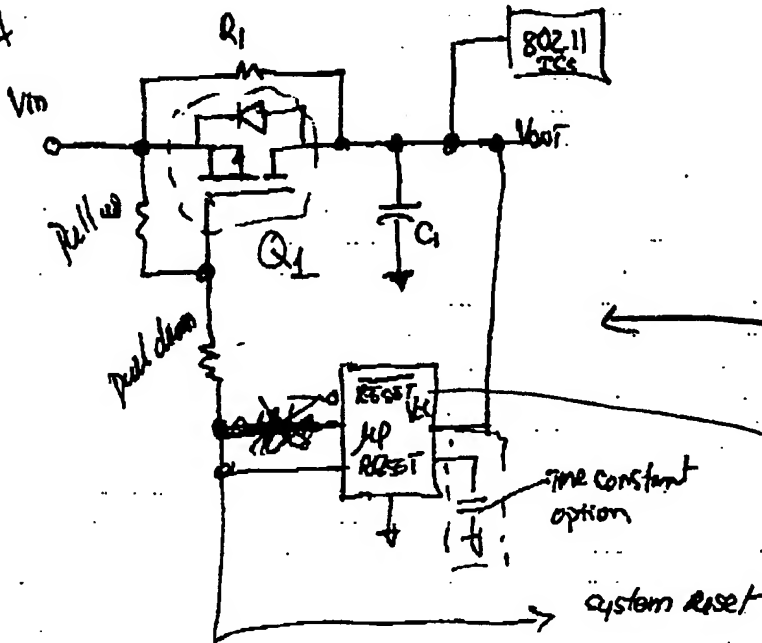 R1
802.11
ICs
Vin
VOUT
Pull up
C1
Q1
pull down
RESET
VCC
μP
RESET
Time constant
option
system reset